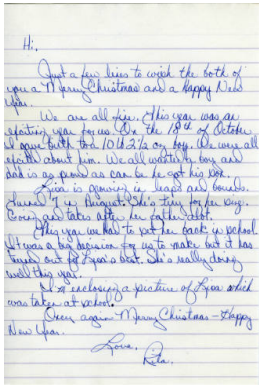 Hi.
Just a few lines to wish the both of
you a Merry Christmas and a Happy New
Year.
We are all fine. This year was an
exciting year for us. On the 18th of October
I gave birth to a 10lb 2½ oz boy. We were all
excited about him. We all wanted a boy and
dad is as proud as can be he got his son.
Lisa is growing in leaps and bounds.
turned 7 in August. She's tiny for her age.
and takes after her father alot.
This year we had to put her back in school.
It was a big decision for us to make but it has
turned out for Lisa's best. She's really doing
well this year.
I'm enclosing a picture of Lisa which
was taken at school.
Once again Merry Christmas - Happy
New Year.
Love,
Rita.